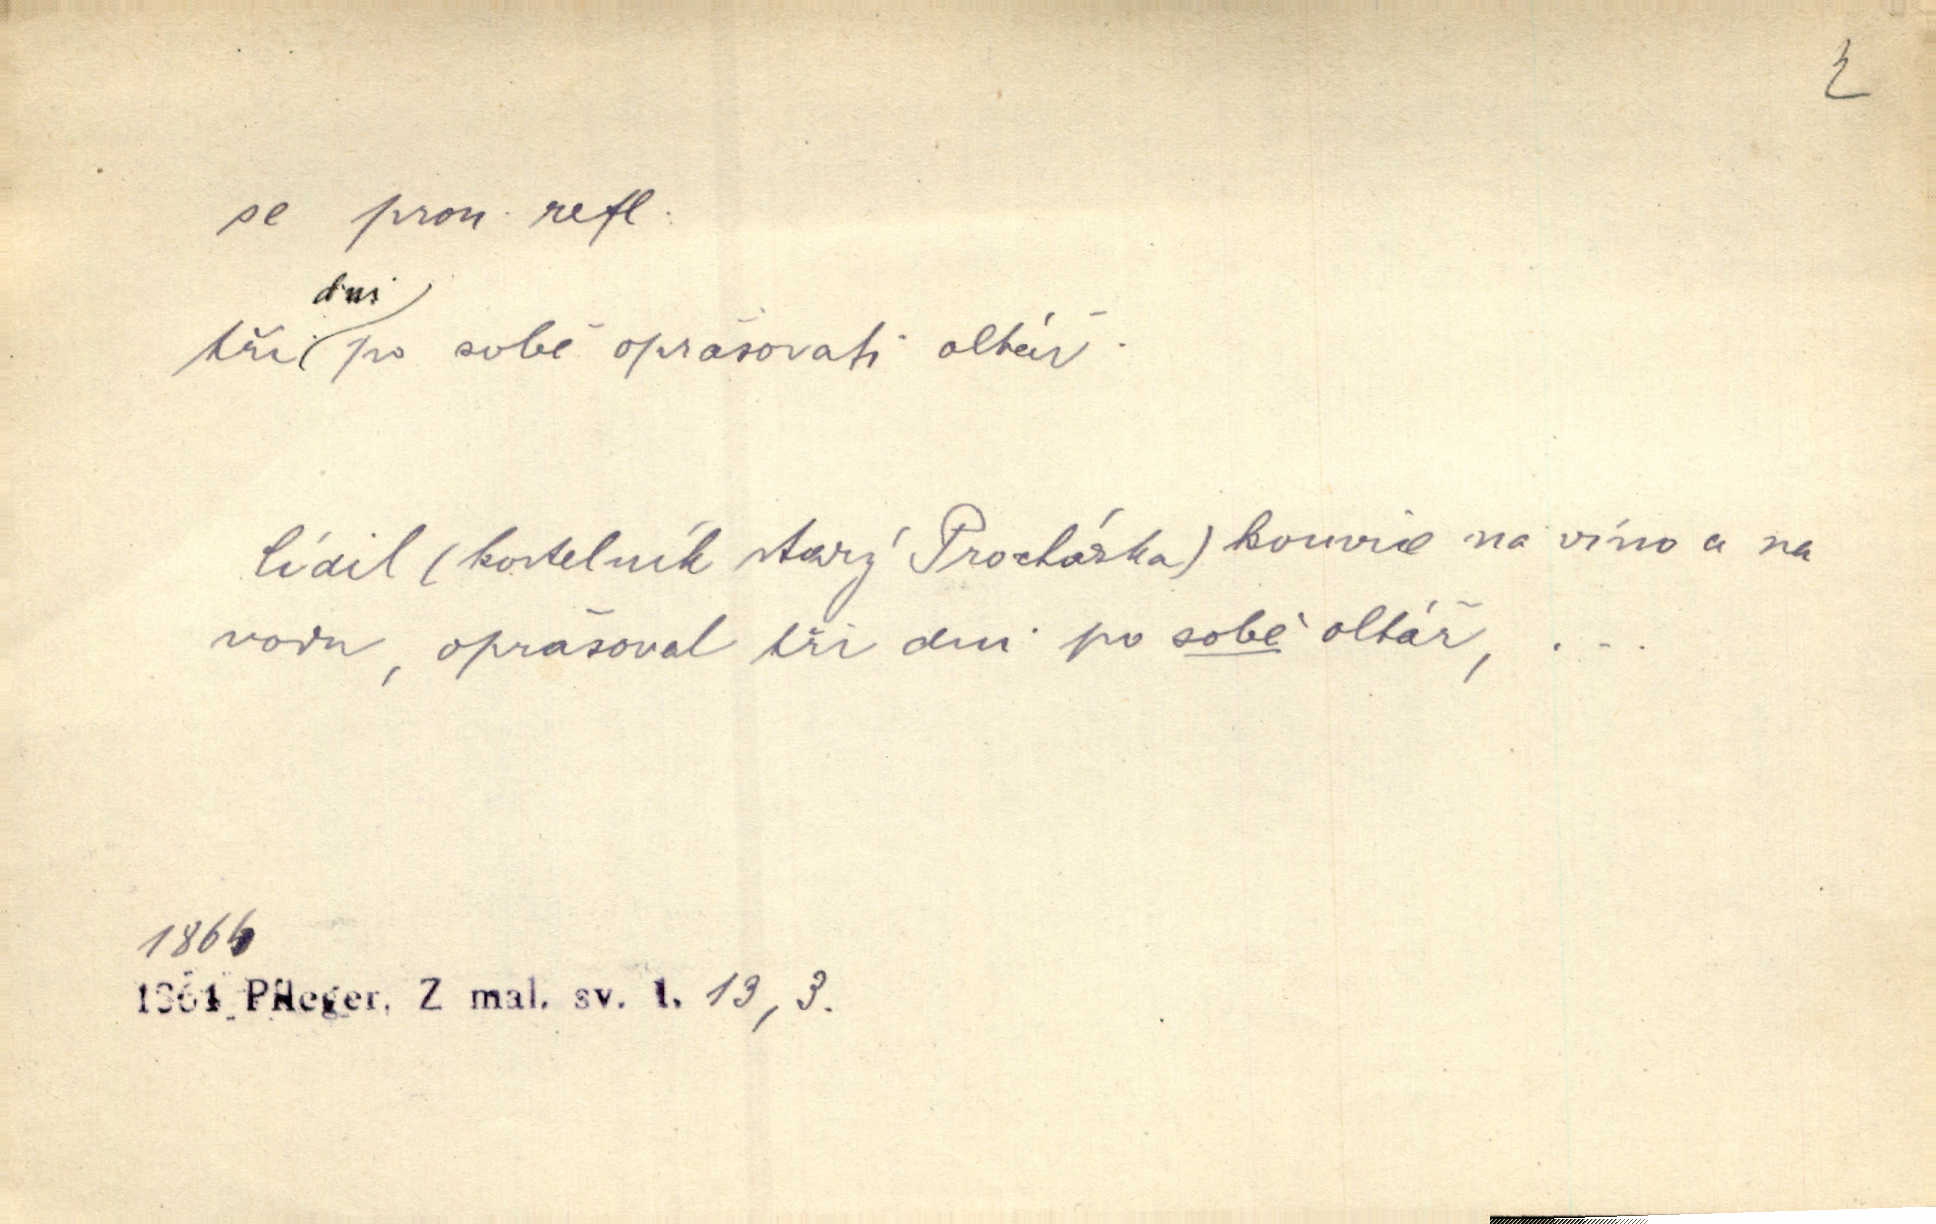 se pron. refl.
dni
tři po sobě oprašovati oltář.
Cídil (kostelník starý Procházka) konvice na víno a na
vodu, oprašoval tři dni po sobě oltář, ...
1864
1861 Pfleger, Z mal. sv. 1. 13, 3.